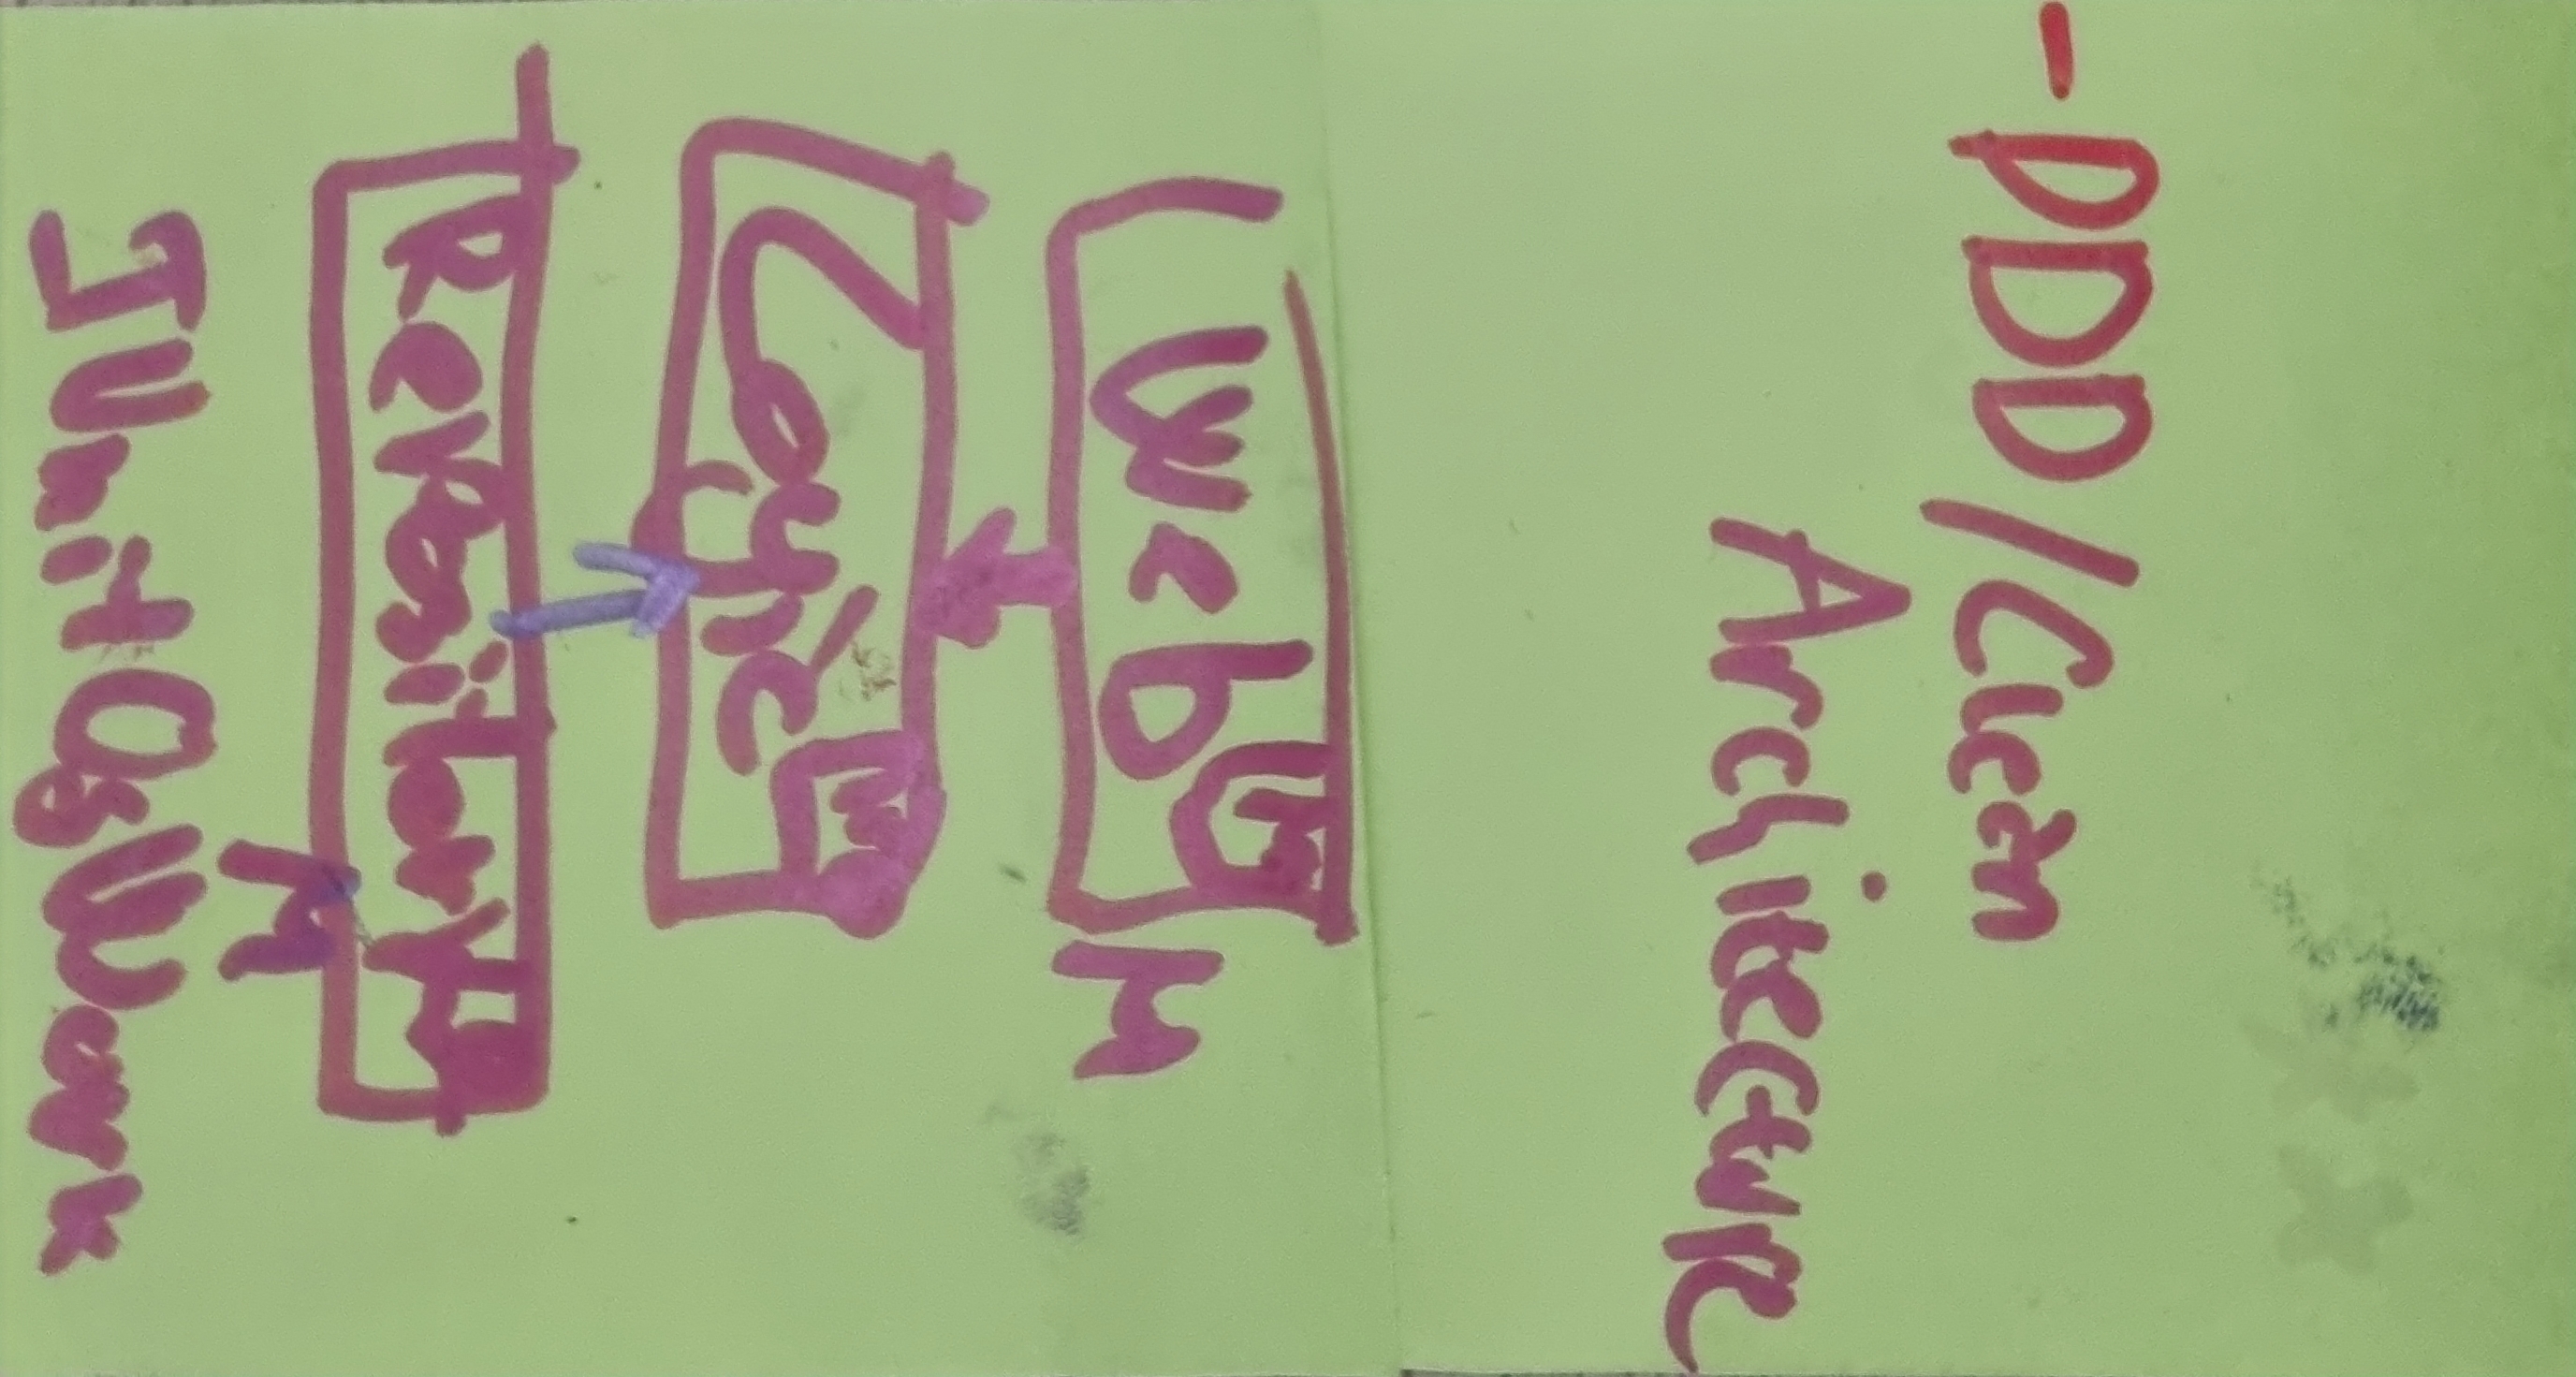 - DDD/Clean
Architecture
Web M
M
Logic M
Repository M
M
IUnitOfWork